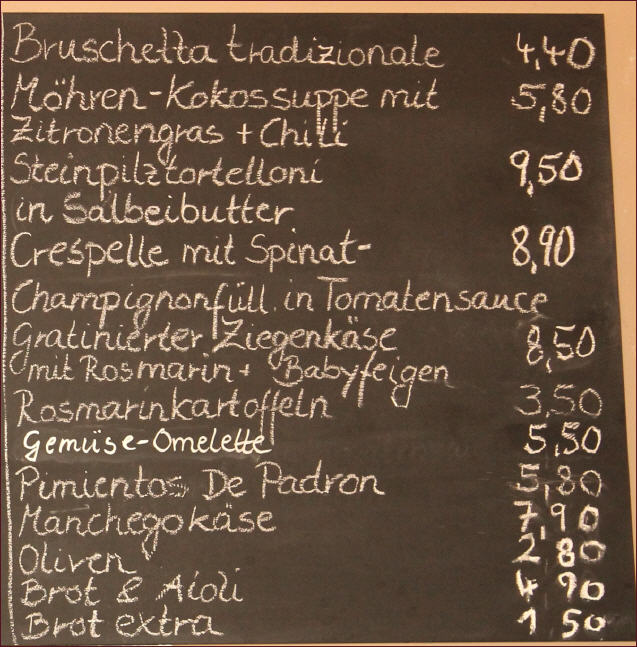 Bruschetta tradizionale 4,40
Möhren-Kokossuppe mit 5,80
Zitronengras + Chili
Steinpilztortelloni 9,50
in Salbeibutter
Crespelle mit Spinat- 8,90
Champignonfüll. in Tomatensauce
Gratinierter Ziegenkäse 8,50
mit Rosmarin + Babyfeigen
Rosmarinkartoffeln 3,50
Gemüse-Omelette 5,50
Pimientos De Padron 5,80
Manchegokäse 7,90
Oliven 2,80
Brot & Aioli 4,90
Brot extra 1,50